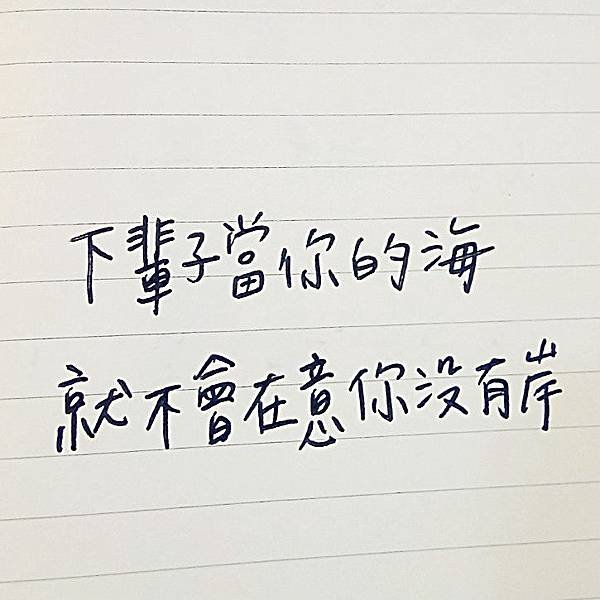 下輩子當你的海
就不會在意你沒有岸